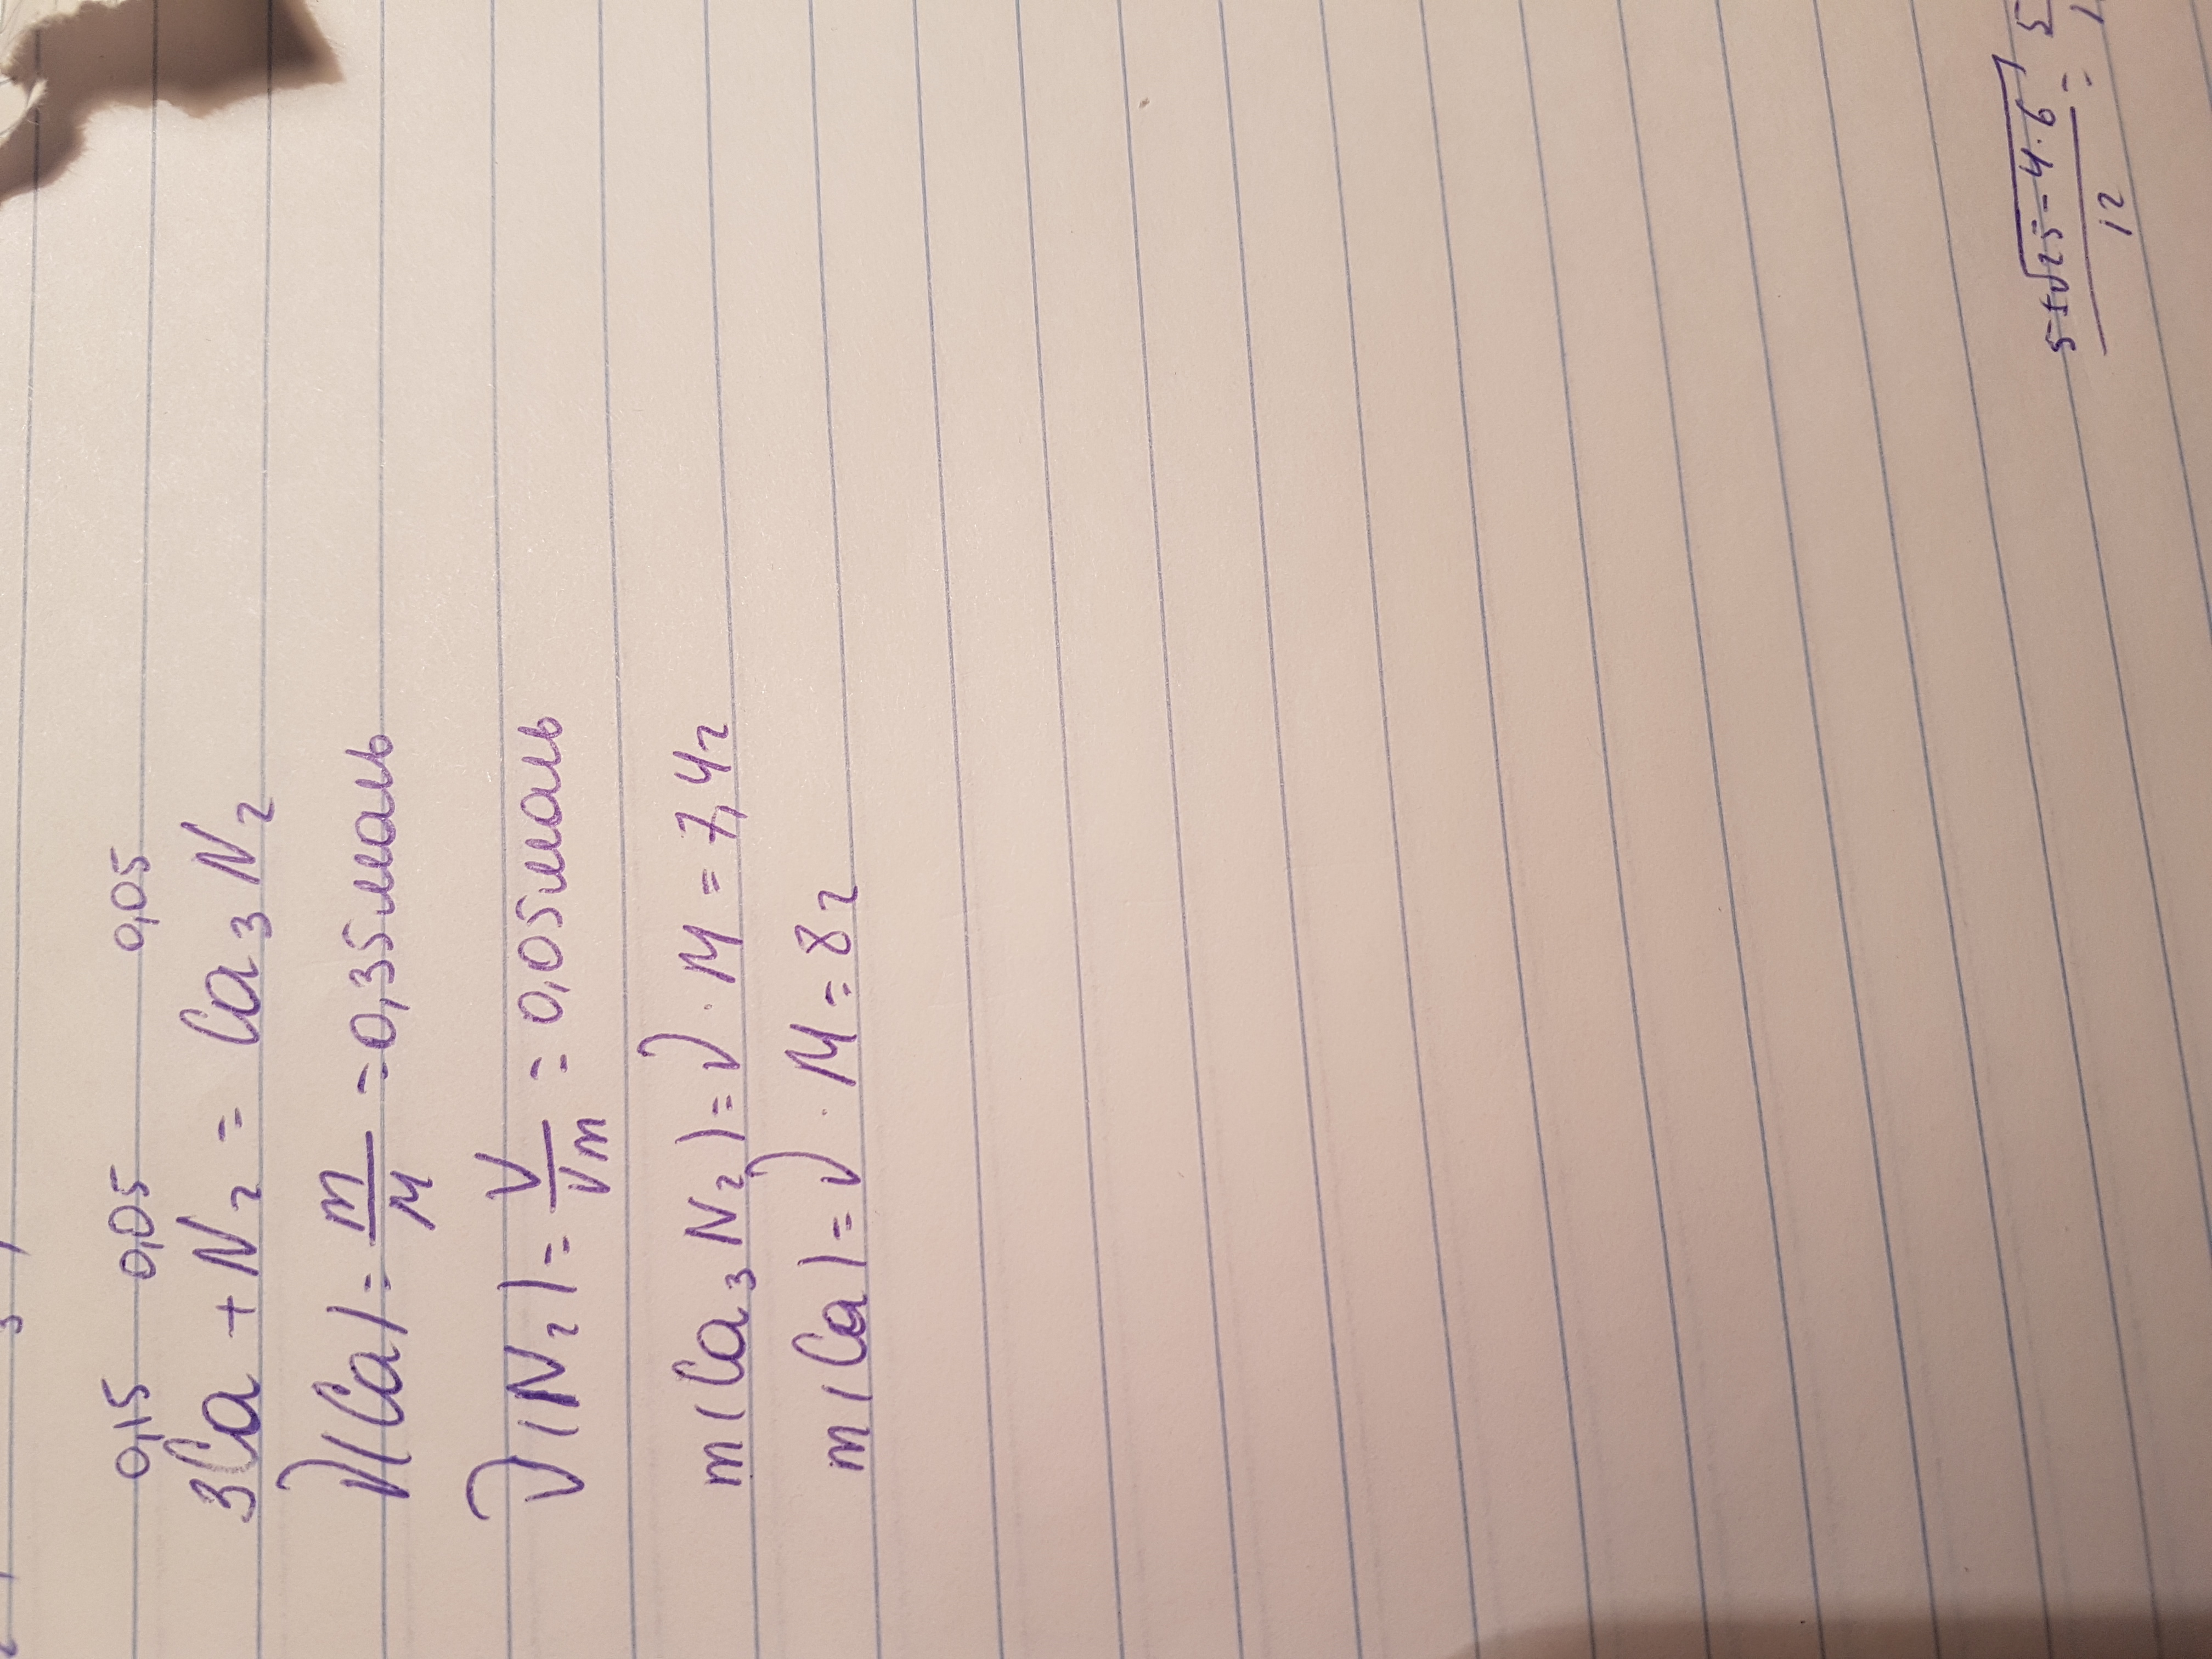 0,15 0,05 0,05
3Ca + N₂ = Ca₃N₂
ν(Ca) = m/M = 0,35моль
ν(N₂) = V/Vm = 0,05моль
m(Ca₃N₂) = ν · M = 7,4г
m(Ca) = ν · M = 8г
5±√25-4·6 / 12 = 5